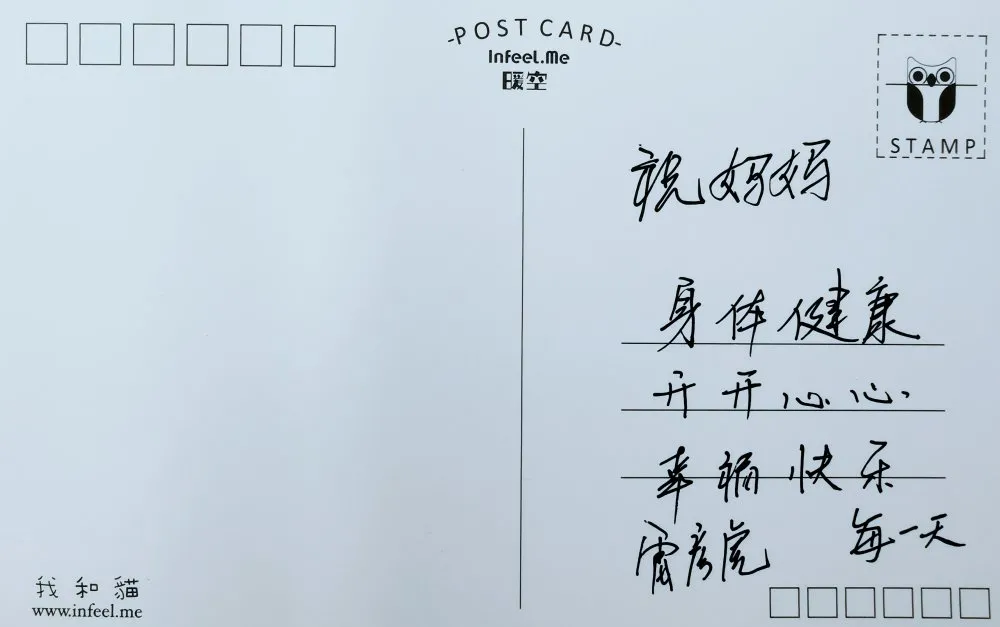 -POST CARD-
Infeel.Me
暖空
STAMP
祝妈妈
身体健康
开开心心
幸福快乐
每一天
雷彦虎
我和貓
www.infeel.me